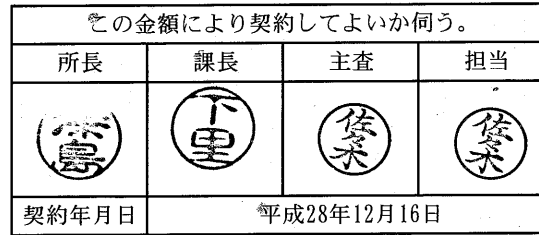 この金額により契約してよいか伺う。
所長 課長 主査 担当
島 下里 佐々木 佐々木
契約年月日 平成28年12月16日